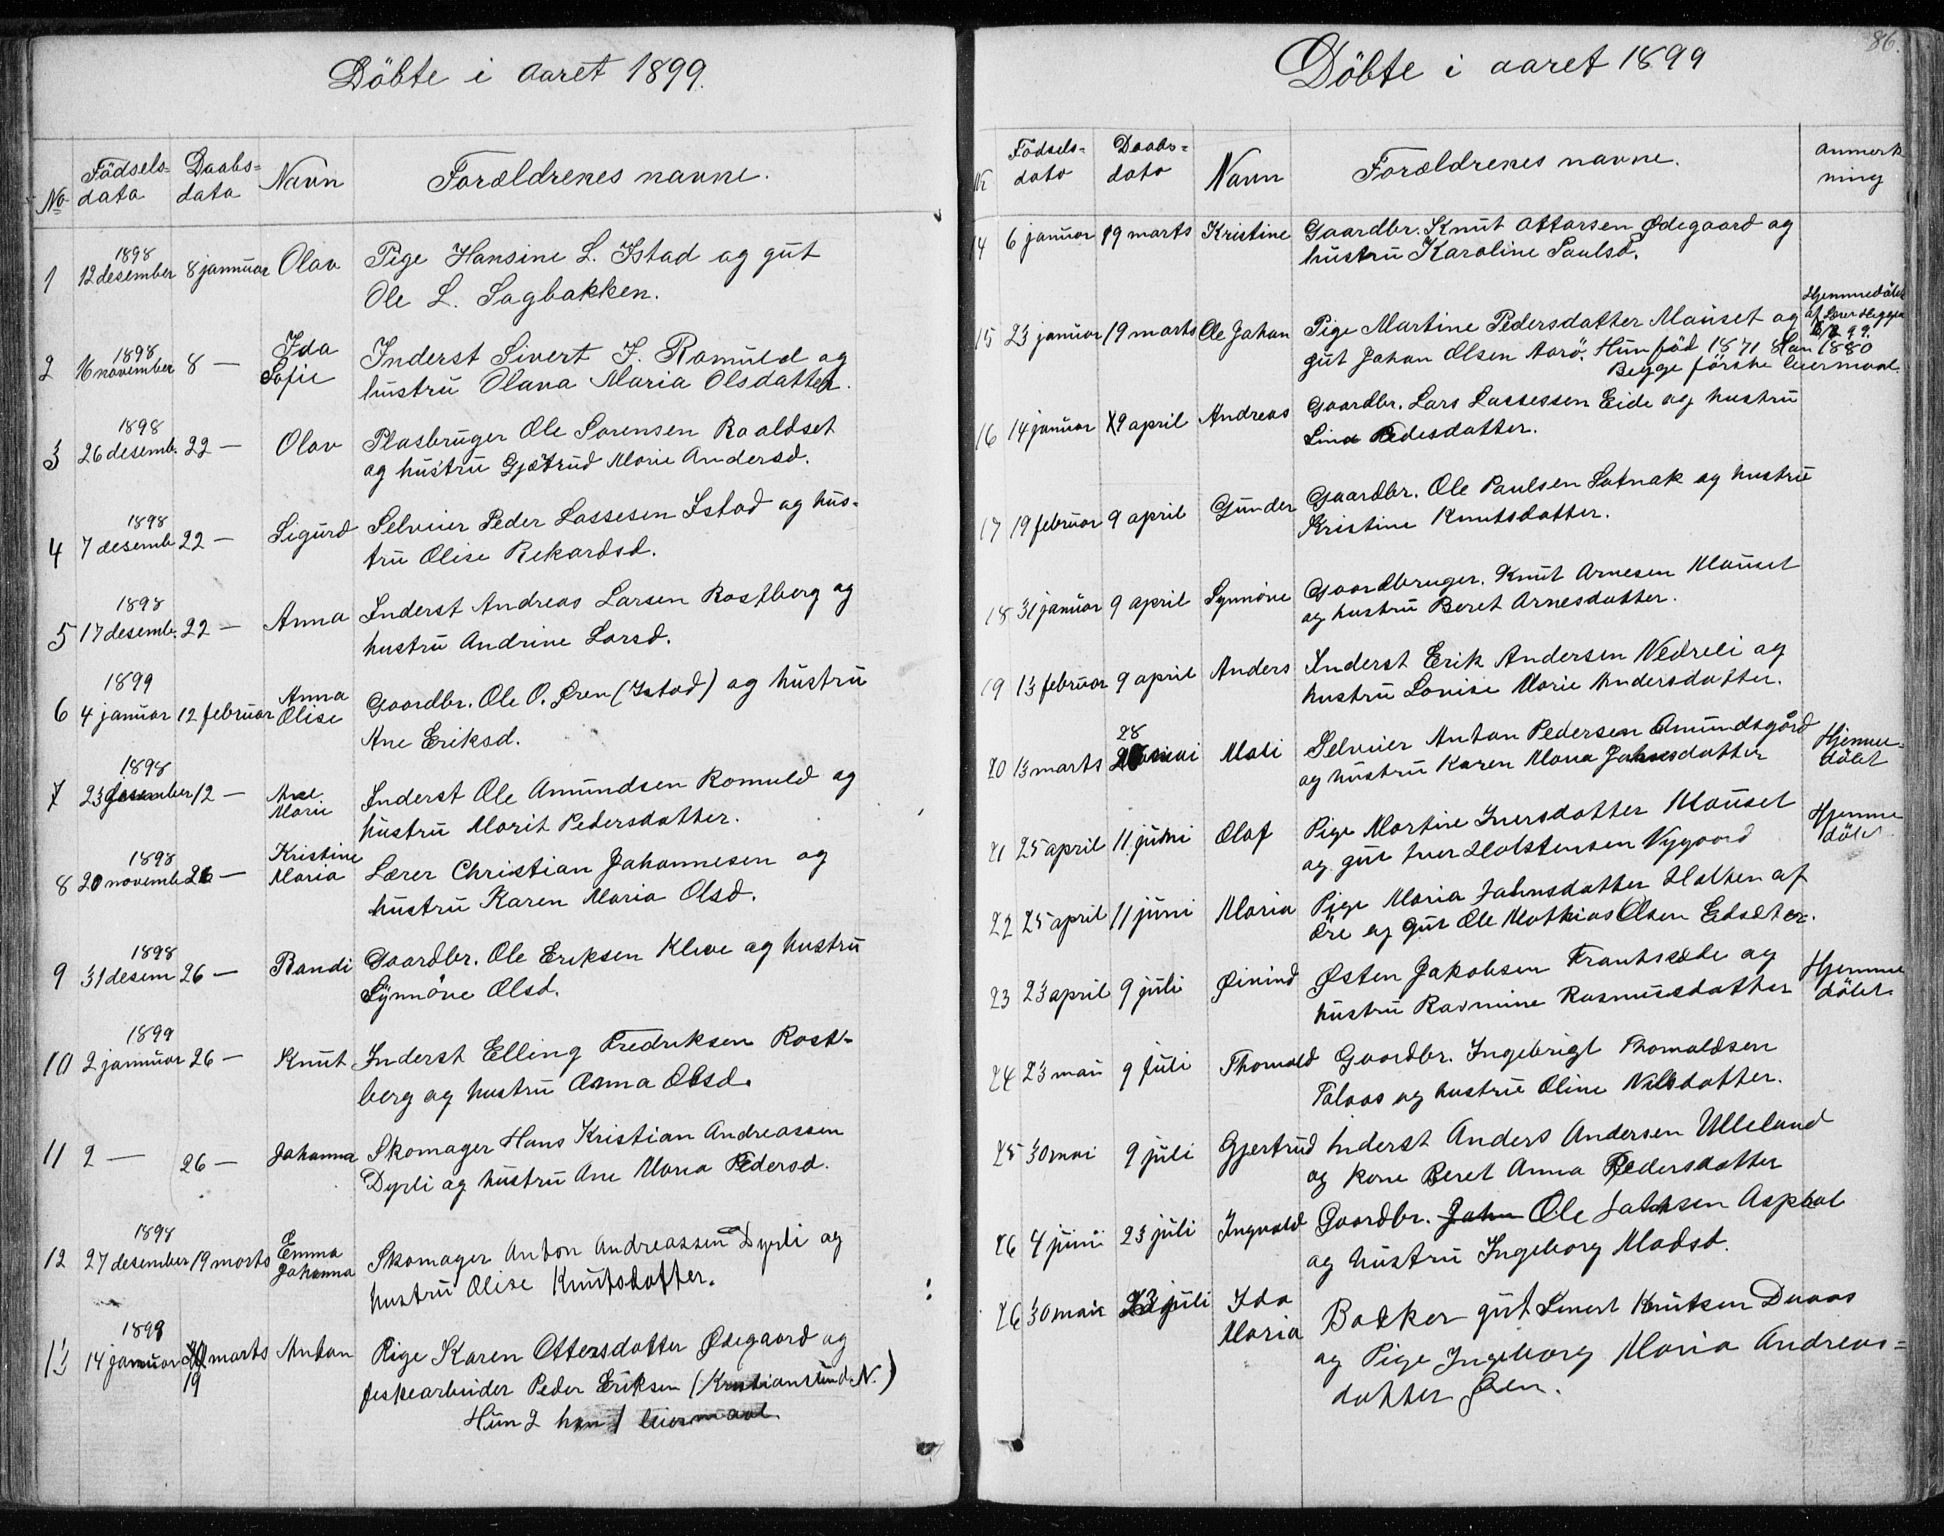 Döbte i aaret 1899.
No Födsels-data Daabs-data Navn Forældrenes navne.
1 1898 12 desember 8 januar Olav Pige Hansine L. Istad og gut
Ole L. Sagbakken.
2 1898 16 november 8 — Ida Sofie Inderst Sivert I. Romuld og
hustru Olava Maria Olsdatter.
3 1898 26 desemb. 22 — Olav Plasbruger Ole Sorensen Raaldset
og hustru Gjetrud Marie Andersd.
4 1898 7 desemb 22 — Sigurd Selveier Peder Lassesen Istad og hus-
tru Olise Rekardsd.
5 1898 17 desemb. 22 — Anna Inderst Andreas Larsen Rostberg og
hustru Andrine Larsd.
6 1899 4 januar 12 februar Anna Olise Gaardbr. Ole O. Øren (Istad) og hustru
Ane Eriksd.
7 1898 23 desember 12 — Ane Marie Inderst Ole Amundsen Romuld og
hustru Marit Pedersdatter.
8 1898 20 novemb 26 — Kristine Maria Lærer Christian Johannesen og
hustru Karen Maria Olsd.
9 1898 31 desem 26 — Randi Gaardbr. Ole Eriksen Kleve og hustru
Synnöve Olsd.
10 1899 2 januar 26 — Knut Inderst Elling Fredriksen Rost-
berg og hustru Anna Olsd.
11 2 — 26 — Johanna Skomager Hans Kristian Andreassen
Dyrli og hustru Ane Maria Pedersd.
12 1898 27 desember 19 marts Emma Johanna Skomager Anton Andreassen Dyrli og
hustru Olise Knutsdatter.
13 1899 14 januar 19 marts Anton Pige Karen Ottersdatter Ødegaard og
fiskearbeider Peder Eriksen (Kristiansund N.)
Hun 2 han 1 leiermaal.
86.
Döbte i aaret 1899
No Födsels-dato Daabs-dato Navn Forældrenes navne. anmerkning
14 6 januar 19 marts Kristine Gaardbr. Knut Ottarsen Ødegaard og
hustru Karoline Paulsd.
15 23 januar 19 marts Ole Johan Pige Martine Pedersdatter Mauset og Hjemmedöbt
gut Johan Olsen Aarö. Hun föd 1871 Han 1880
Begge förste leiermaal.
16 14 januar 9 april Andreas Gaardbr. Lars Lassessen Eide og hustru
Lina Pedesdatter.
17 19 februar 9 april Gunder Gaardbr. Ole Paulsen Sotnak og hustru
Kristine Knutsdatter.
18 31 januar 9 april Synnöve Gaardbruger. Knut Arnesen Mauset
og hustru Beret Arnesdatter.
19 13 februar 9 april Anders Inderst Erik Andersen Nedreli og
hustru Lovise Marie Andersdatter.
20 13 marts 28 mai Mali Selveier Anton Pedersen Amundsgård Hjemme-
og hustru Karen Maria Johnsdatter döbt
21 25 april 11 juni Olaf Pige Martine Iversdatter Mauset Hjemme
og gut Iver Holstensen Nygaard döbt
22 25 april 11 juni Maria Pige Maria Johnsdatter Holten af
Öre og gut Ole Mathias Olsen Eidsæter.
23 23 april 9 juli Øivind Østen Jakobsen Frantsæde og Hjemme
hustru Rasmine Rasmusdatter döbt
24 23 mai 9 juli Thorvald Gaardbr. Ingebrigt Thomaldsen
Talaas og hustru Oline Nilsdatter.
25 30 mai 9 juli Gjertrud Inderst Anders Andersen Ulleland
og kone Beret Anna Pedersdatter
26 4 juni 23 juli Ingvald Gaardbr. John Ole Johnsen Aspbøl
og hustru Ingeborg Madsd.
26 30 mai 23 juli Ida Maria Backer gut Sivert Knutsen Duaas
og Pige Ingeborg Maria Andreas-
datter Øren.